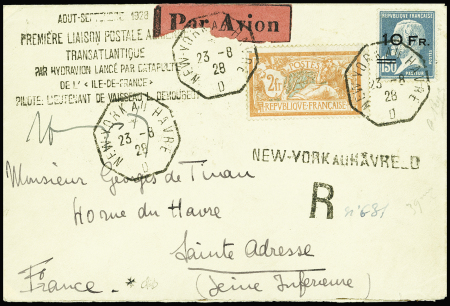 AOUT-SEPTEMBRE 1928
PREMIÈRE LIAISON POSTALE
TRANSATLANTIQUE
PAR HYDRAVION LANCÉ PAR CATAPULTE
DE L' "ILE-DE-FRANCE"
PILOTE: LIEUTENANT DE VAISSEAU L. DEMOUGEOT
Par Avion
NEW-YORK AU HAVRE D
23-8
28
POSTES
2f
REPUBLIQUE FRANÇAISE
NEW-YORK AU HAVRE
23-8
28
D
10 Fr.
1F50
NEW-YORK AU HAVRE
23-8
28
D
NEW-YORK AU HAVRE_D
R
n°681
Monsieur Georges de Tinan
Home du Havre
Sainte Adresse
France
(Seine Inférieure)